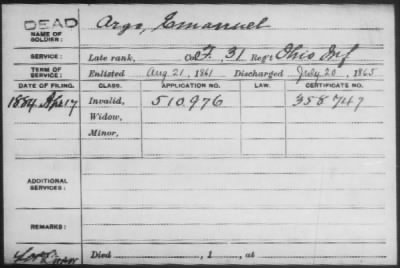 DEAD
NAME OF SOLDIER: Argo, Emanuel
SERVICE: Late rank, Co. F, 31 Reg't Ohio Inf
TERM OF SERVICE: Enlisted Aug. 21, 1861 Discharged July 20, 1865
DATE OF FILING. CLASS. APPLICATION NO. LAW. CERTIFICATE NO.
1884 Apr 17 Invalid, 510.976 358747
Widow,
Minor,
ADDITIONAL SERVICES:
REMARKS:
Died , 1 , at